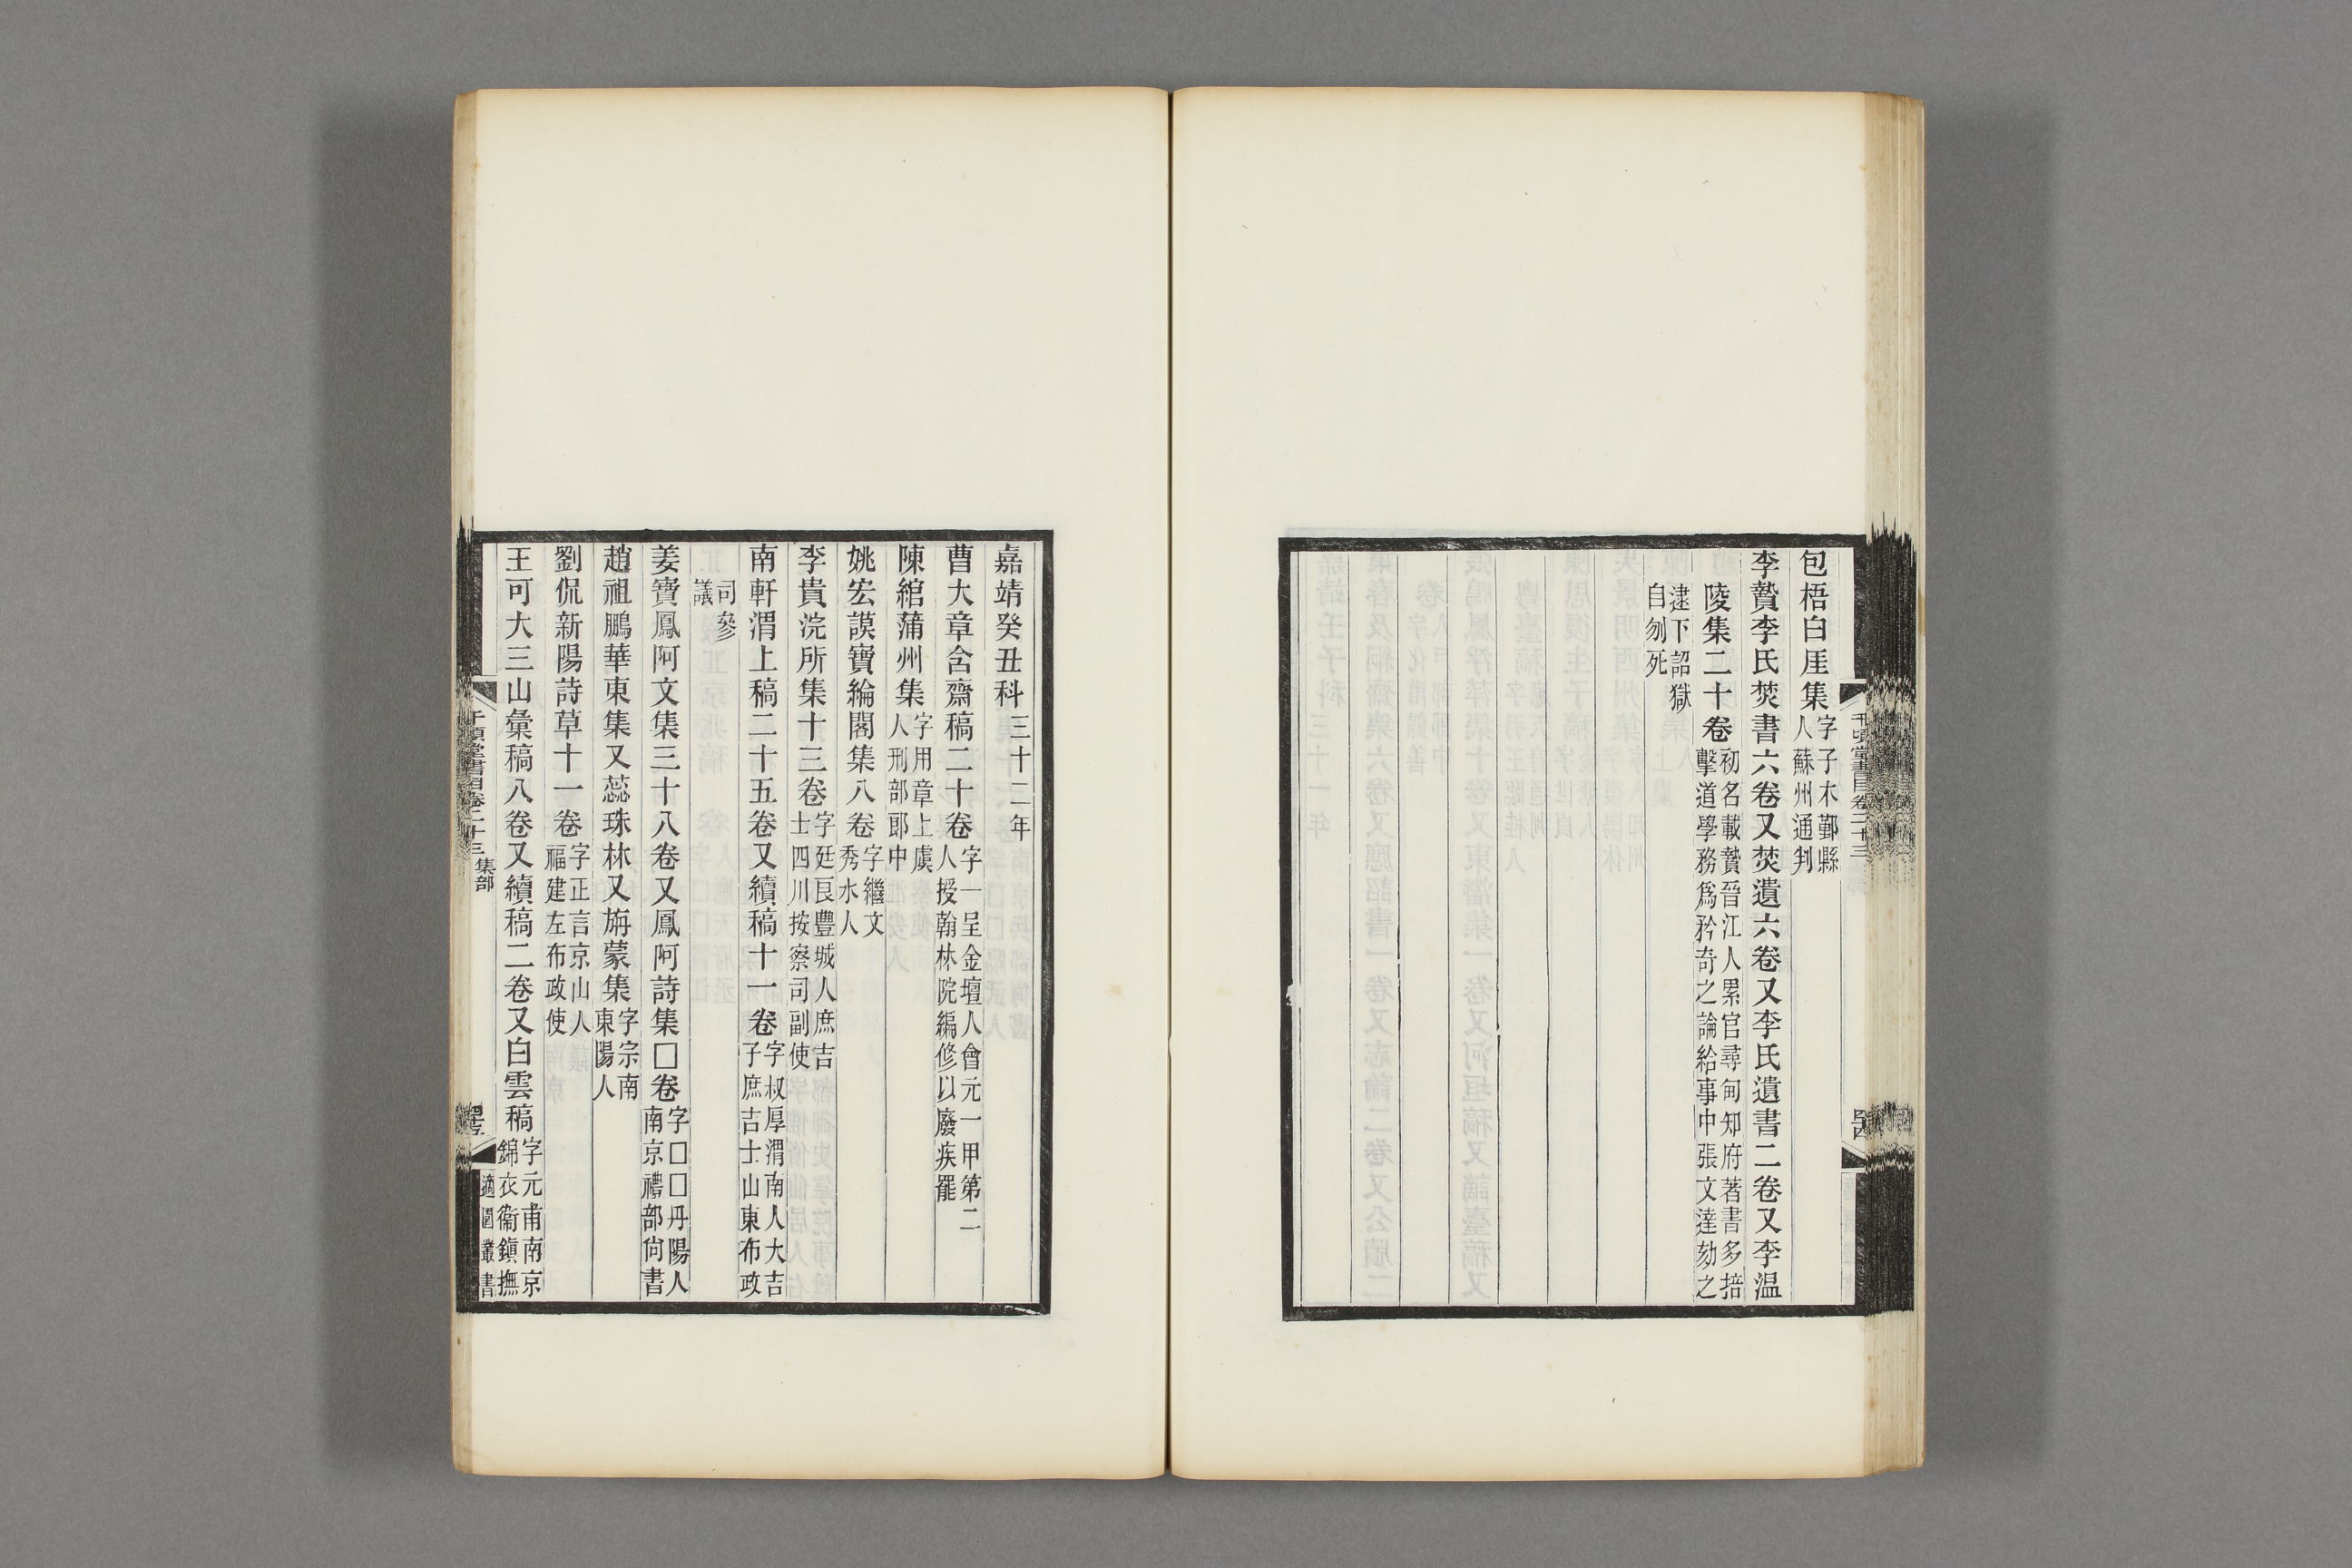 包梧白厓集字子木鄞縣人蘇州通判
李贄李氏焚書六卷又焚遺六卷又李氏遺書二卷又李温
陵集二十卷初名載贄晉江人累官尋甸知府著書多掊擊道學務爲矜奇之論給事中張文達劾之
逮下詔獄自刎死
嘉靖癸丑科三十二年
曹大章含齋稿二十卷字一呈金壇人會元一甲第二人授翰林院編修以廢疾罷
陳綰蒲州集字用章上虞人刑部郎中
姚宏謨寶綸閣集八卷字繼文秀水人
李貴浣所集十三卷字廷良豐城人庶吉士四川按察司副使
南軒渭上稿二十五卷又續稿十一卷字叔厚渭南人大吉子庶吉士山東布政
司參議
姜寶鳳阿文集三十八卷又鳳阿詩集□卷字□□丹陽人南京禮部尙書
趙祖鵬華東集又蕊珠林又旃蒙集字宗南東陽人
劉侃新陽詩草十一卷字正言京山人福建左布政使
王可大三山彙稿八卷又續稿二卷又白雲稿字元甫南京錦衣衞鎭撫
千頃堂書目卷二十三 集部
適園叢書